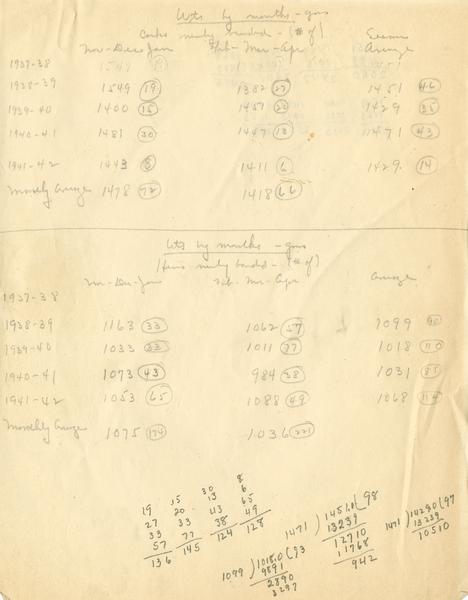 Wts by months - gms
Cocks newly banded - (# of)
Season
Nov-Dec-Jan Feb-Mar-Apr Average
1937-38 1549
1938-39 1549 (19) 1382 (27) 1451 (46)
1939-40 1400 (15) 1451 (20) 1429 (35)
1940-41 1481 (30) 1447 (13) 1471 (43)
1941-42 1443 (8) 1411 (6) 1429 (14)
Monthly Average 1478 (72) 1418 (66)
Wts by months - gms
Hens newly banded - (# of)
Nov-Dec-Jan Feb-Mar-Apr Average
1937-38
1938-39 1163 (33) 1062 (57) 1099 (90)
1939-40 1033 (33) 1011 (77) 1018 (110)
1940-41 1073 (43) 984 (38) 1031 (81)
1941-42 1053 (65) 1088 (49) 1068 (114)
Monthly Average 1075 (174) 1036 (221)
8
30 6
15 13 65
19 20 43 49
27 33 38 128
33 77 124
57 145
136
1471 ) 1451.0 ( 98
13239
12710
11768
942
1471 ) 14290 ( 97
13239
10510
1099 ) 1018.0 ( 93
9891
2890
3297